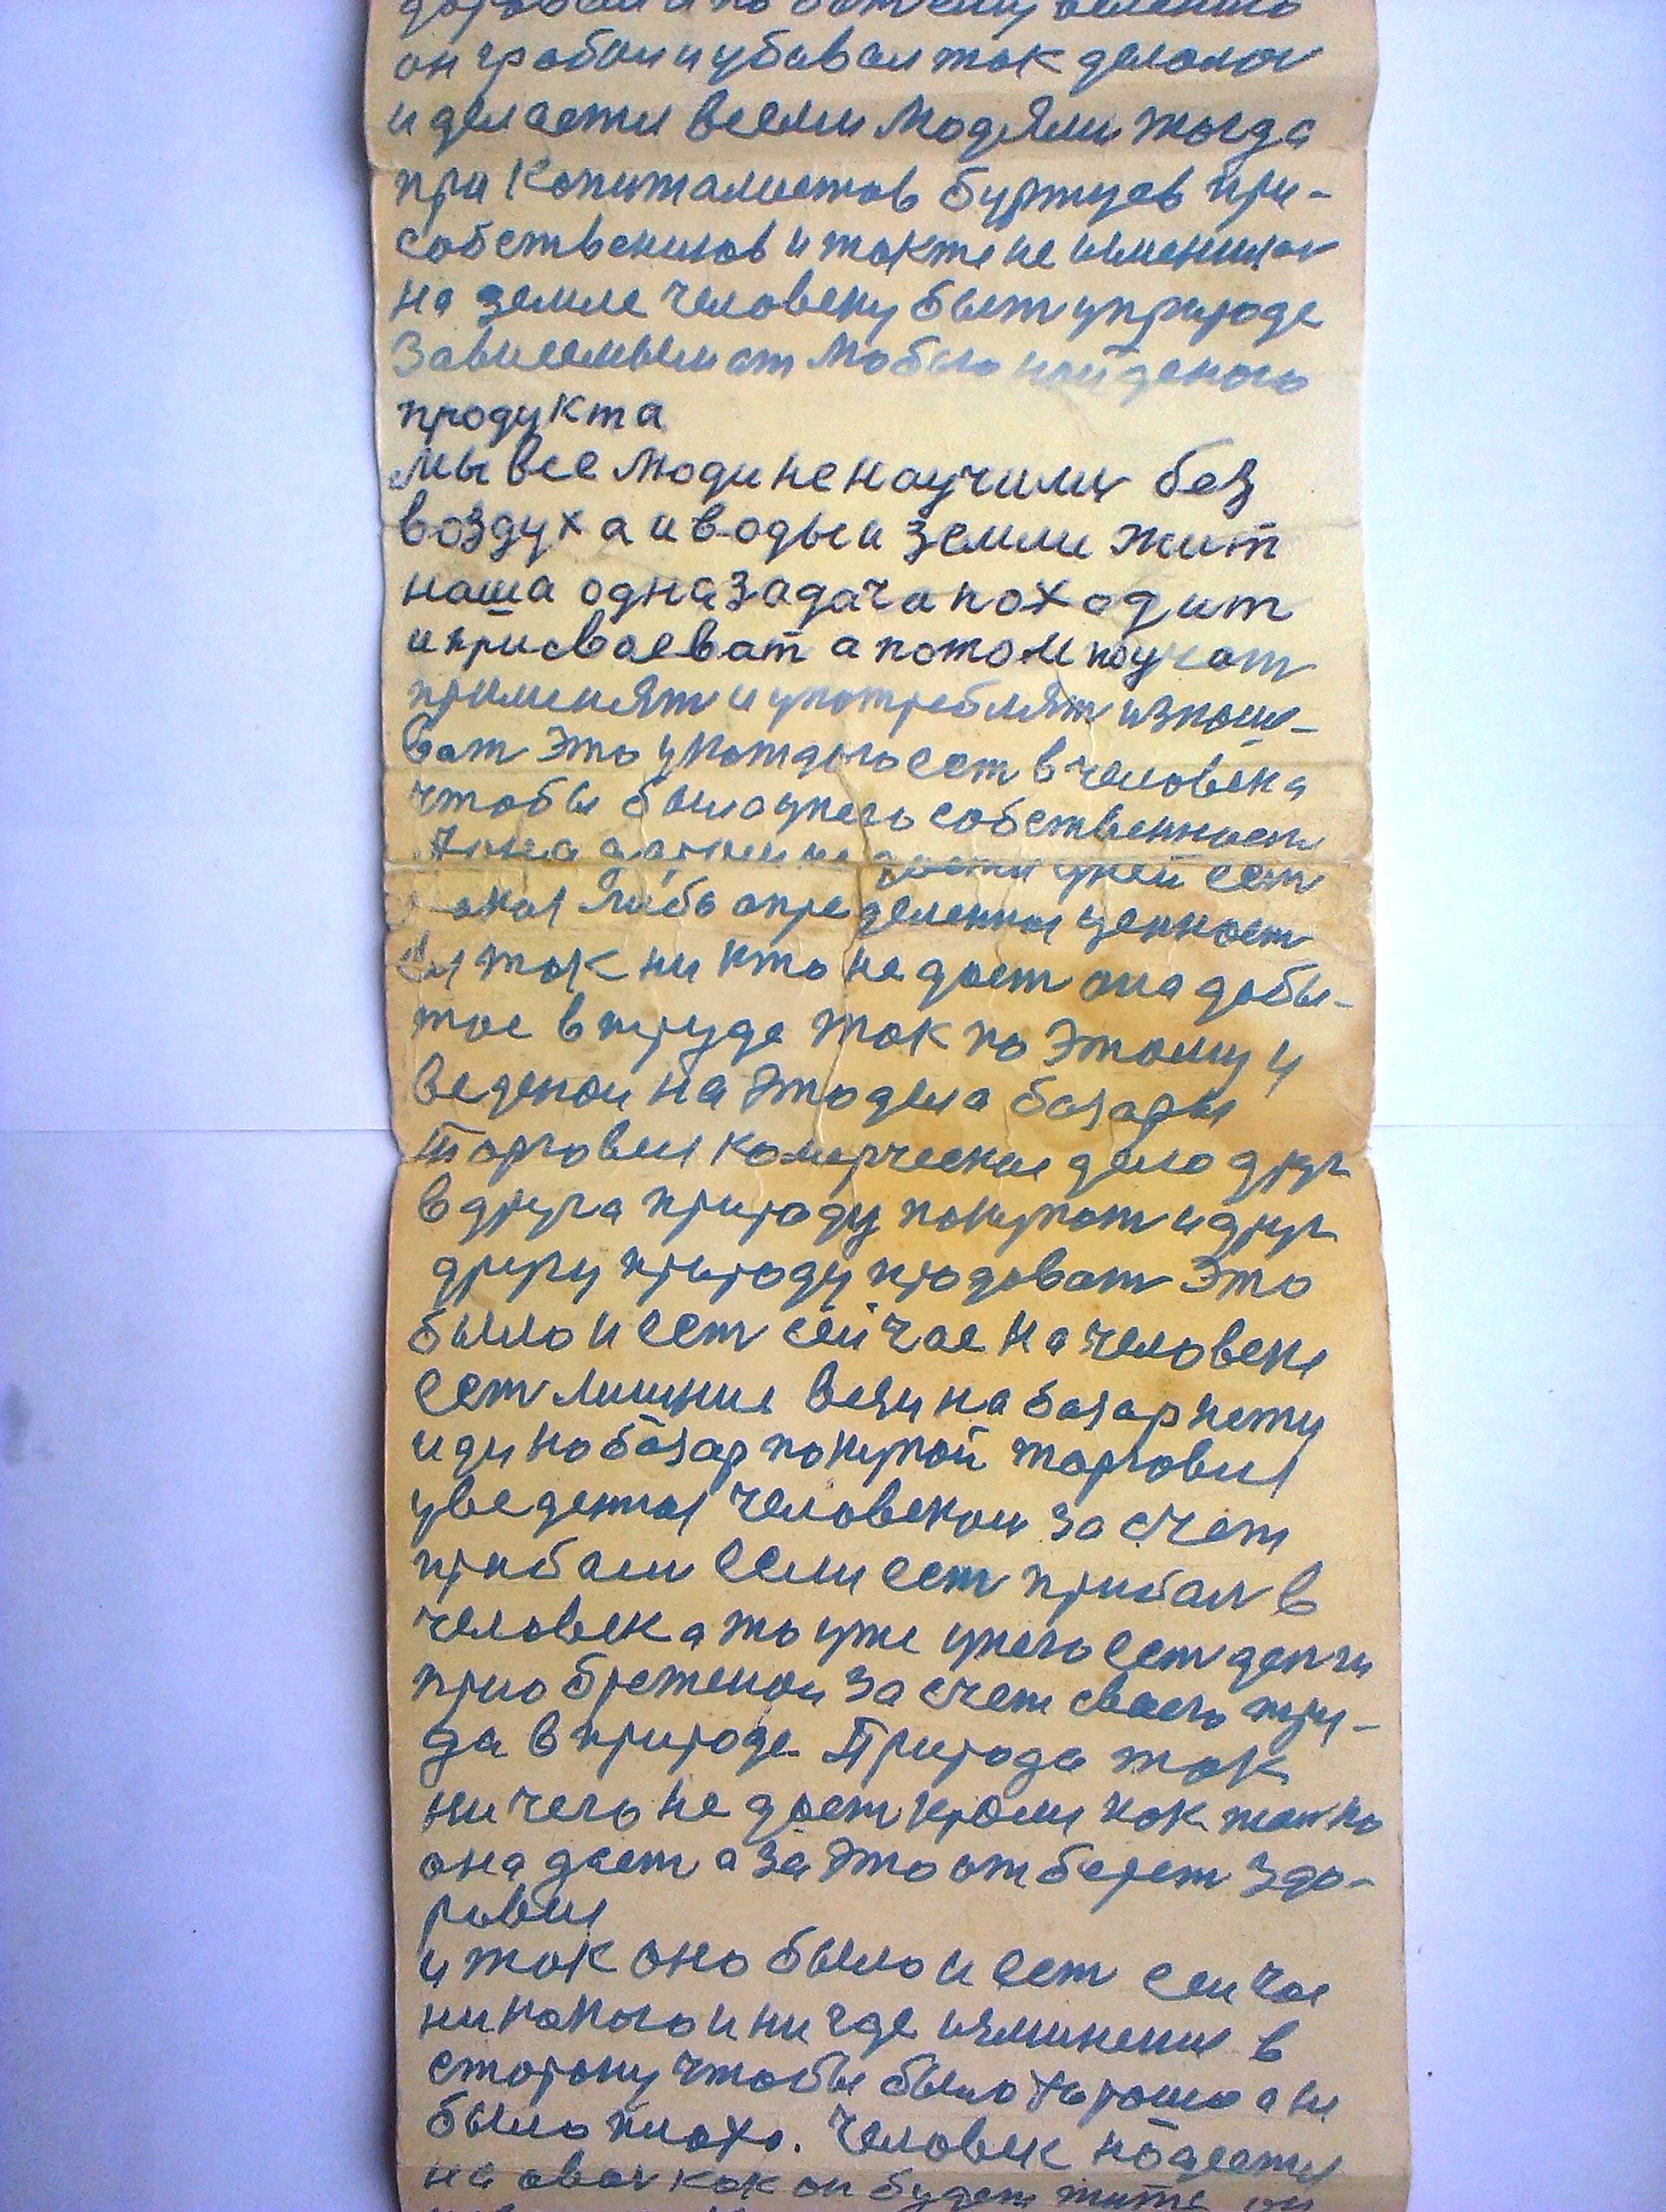 он гробом и убивал так делалос
и делается всеми людями тогда
при Копиталистов буржуев при-
собствеников и также не изменилос
на земле человеку быт уприроде
Зависемым от любого найденого
продукта
мы все люди не научилис без
воздуха и воды и земли жит
наша одна задача находит
и присваеват а потом начат
применят и употреблят изнаши-
ват это у каждого ест в человека
чтобы была унего собственност
уней ест
либо определеная ценност
так ни кто не дает она добы-
тое в труде так по этому и
веденом на это дела базары
торговля комерческие дело друг
в друга природу покупат и друг
другу природу продоват это
было и ест сейчас на человеке
ест лишние вези на базар нету
иди на базар покупай торговля
уведеная человеком за счет
прибыли если ест прибыл в
человека то уже унего ест денги
приобретеном за счет своего тру-
да в природе. Природа так
ни чего не дает кроме как толко
она дает а за это отберет здо-
ровие
и так оно было и ест сеичас
никакого и ни где изминения в
сторону чтобы было хорошо а не
было плохо. Человек надеется
на авос как он будет жите он